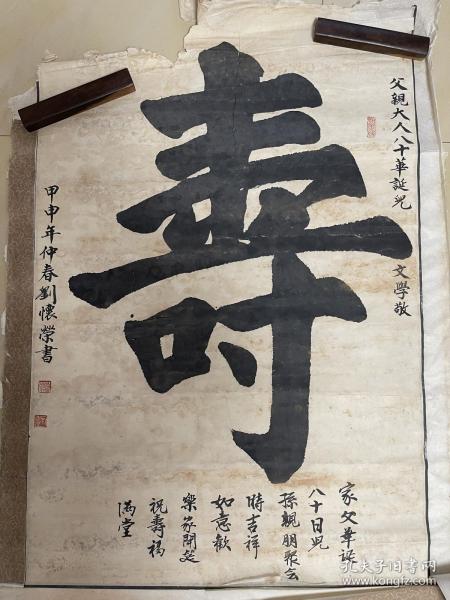 父親大人八十華誕兒
文學敬
壽
甲申年仲春劉懷榮書
家父華誕
八十日兒
孫親朋聚会
時吉祥
如意歡
樂家開筵
祝壽福
滿堂
孔夫子旧书网